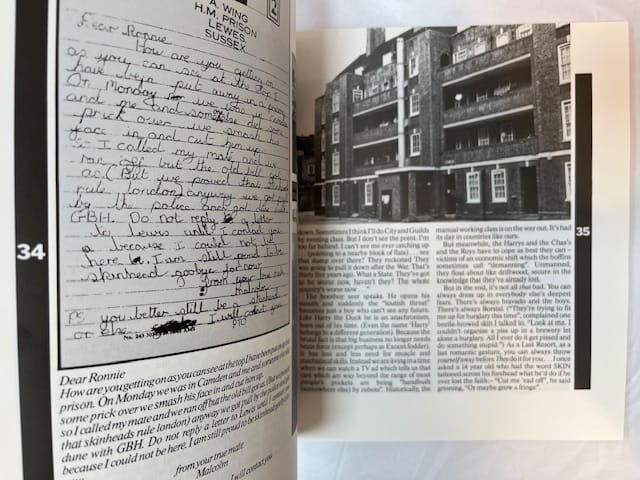 A. WING
H.M. PRISON
LEWES,
SUSSEX
2
Dear Ronnie
How are you getting on
as you can see at the top I
have been put away in a prison
On Monday we was in Camden
and me and some
prick over we smash his
face in and cut him up
so I called my mate and we
ran off but the old bill got
us. (But we proved that skinheads
rule london) anyway we got
by the police and got done with
GBH. Do not reply a letter
to Lewes until I contact you
because I could not be
here. I am still proud to be
skinhead goodbye for now
from your true mate
Malcolm
PS you better still be a skinhead
or else I will contact you
PTO
34
Dear Ronnie
How are you getting on as you can see at the top I have been put away
prison. On Monday we was in Camden and me and
some prick over we smash his face in and cut him up
so I called my mate and we ran off but the old bill got us. (But we proved
that skinheads rule london) anyway we got pull by the police and got
dune with GBH. Do not reply a letter to Lewis until I contact
because I could not be here. I am still proud to be skinhead goodbye
from your true mate
Malcolm
I will contact you
35
down. Sometimes I think I'll do City and Guilds
by evening class. But I don't see the point. I'm
too far behind. I can't see me ever catching up
. . . (pointing to a nearby block of flats) . . . see
that dump over there? They reckoned They
was going to pull it down after the War. That's
thirty five years ago. What a State. They've got
to be worse now, haven't they? The whole
country's worse now . . ."
The bootboy seer speaks. He opens his
mouth and suddenly the "loutish threat"
becomes just a boy who can't see any future.
Like Harry the Duck he is an anachronism,
born out of his time. (Even the name 'Harry'
belongs to a different generation). Because the
brutal fact is that big business no longer needs
brute force (except perhaps as Exocet fodder).
It has less and less need for muscle and
mechanical skills. Instead we are living in a time
when we can watch a TV ad which tells us that
cars which are way beyond the range of most
people's pockets are being "handbuilt
(somewhere else) by robots". Historically, the
manual working class is on the way out. It's had
its day in countries like ours.
But meanwhile, the Harrys and the Chas's
and the Roys have to cope as best they can –
victims of an economic shift which the boffins
sometimes call "demanning". Unmanned,
they float about like driftwood, secure in the
knowledge that they're already lost.
But in the end, it's not all that bad. You can
always dress up in everybody else's deepest
fears. There's always bravado and the boys.
There's always Borstal. ("They're trying to fit
me up for burglary this time", complained one
beetle-browed skin I talked to. "Look at me. I
couldn't organise a piss up in a brewery let
alone a burglary. All I ever do it get pissed and
do something stupid.") As a Last Resort, as a
last romantic gesture, you can always throw
yourself away before They do it for you . . . I once
asked a 14 year old who had the word SKIN
tattooed across his forehead what he'd do if he
ever lost the faith:– "Cut me 'ead off", he said
grinning, "Or maybe grow a fringe".